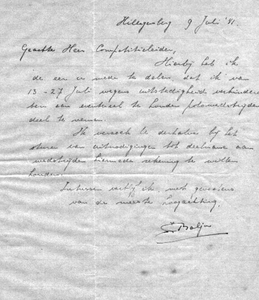 Hillegersberg 9 Juli '31.
Geachte Heer Competitieleider,
Hierbij heb ik
de eer u mede te delen, dat ik van
13-27 Juli wegens uitstedigheid verhinderd
ben aan eventueel te houden polowedstrijden
deel te nemen.
Ik verzoek u derhalve bij het
sturen van uitnodigingen tot deelname aan
wedstrijden hiermede rekening te willen
houden.
Inmiddels verblijf ik, met gevoelens
van de meeste hoogachting.